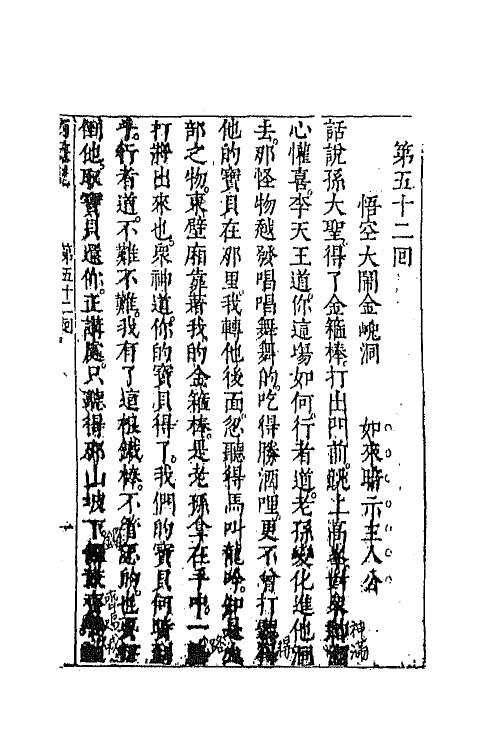 第五十二回
悟空大鬧金𠒇洞　如來暗示主人公
話說孫大聖得了金箍棒打出門前跳上高峯對衆神滿
心懽喜李天王道你這場如何行者道老孫變化進他洞
去那怪物越發唱唱舞舞的吃得勝酒哩更不曾打聽得
他的寶貝在那里我轉他後面忽聽得馬叫龍吟
部之物東壁廂靠著我的金箍棒是老孫拿在手中一路
打將出來也衆神道你的寶貝得了我們的寶貝何時
手行者道不難不難我有了這根鐵棒不管的也要
倒他取寶貝還你正講處只聽得那山坡下鑼鼓齊鳴
西遊記　第五十二回　一